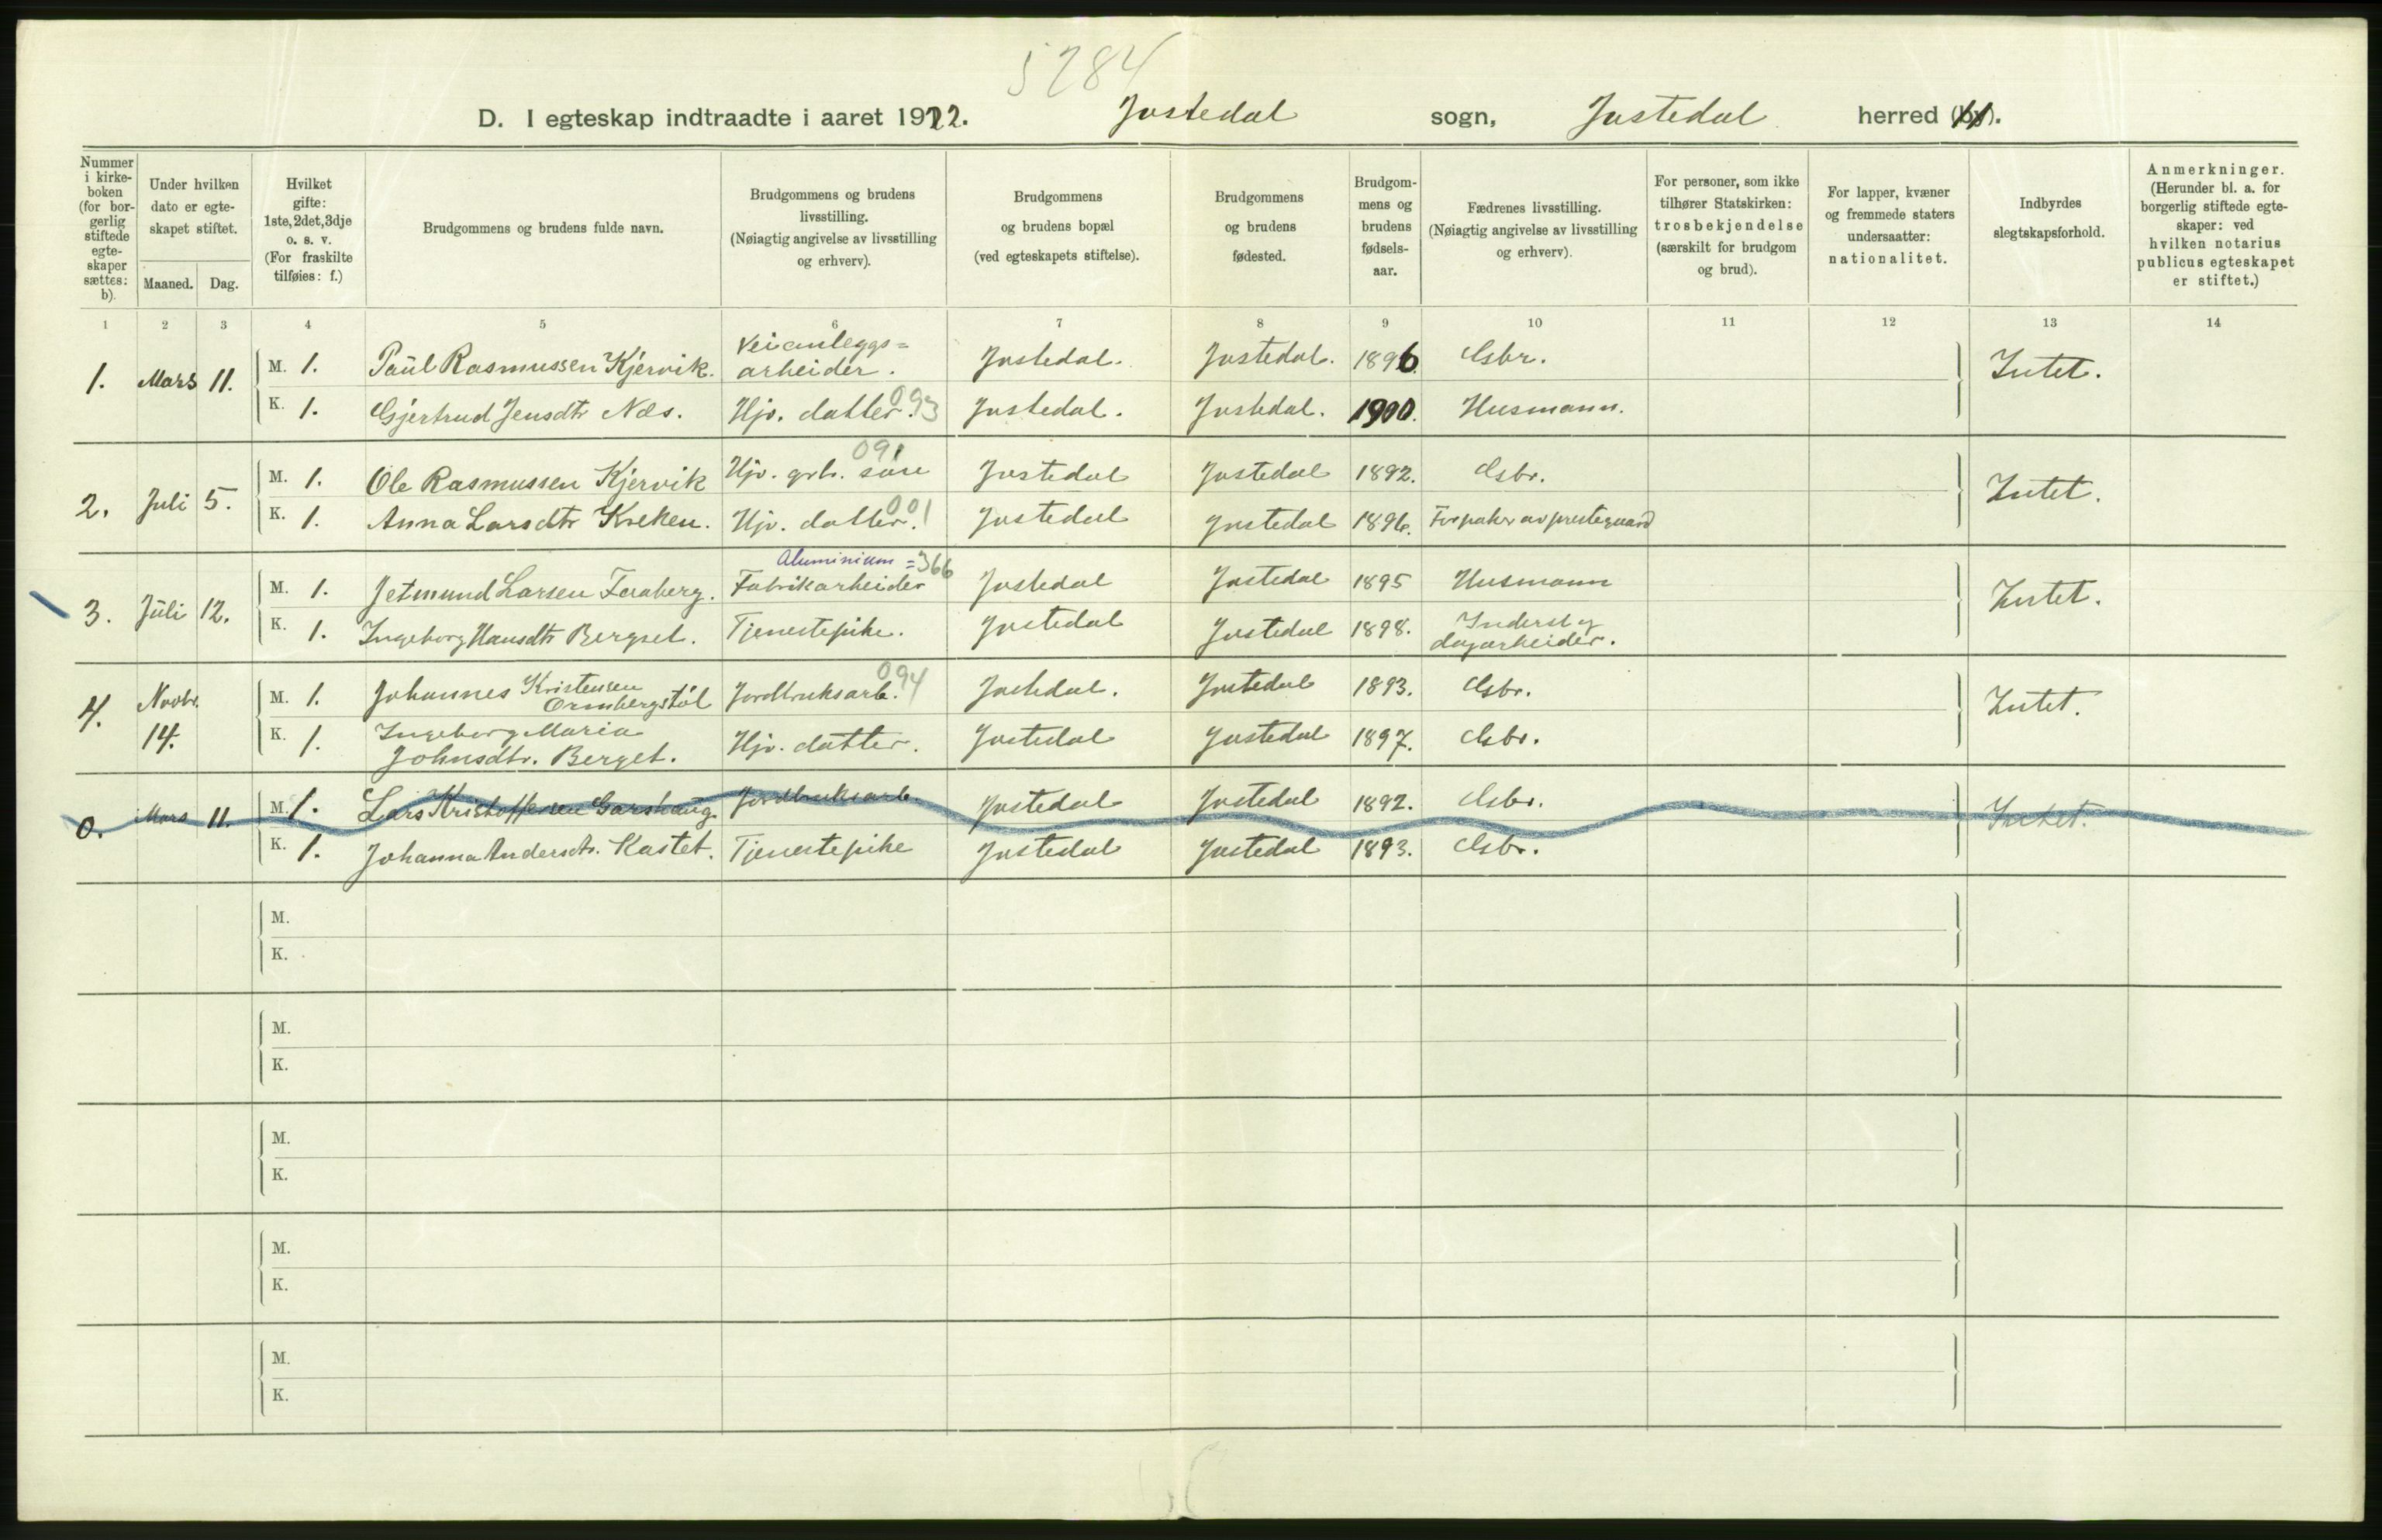 5284
D. I egteskap indtraadte i aaret 1922. Jostedal sogn, Jostedal herred (by).
Nummer i kirkeboken (for borgerlig stiftede egteskaper sættes: b).
Under hvilken dato er egteskapet stiftet.
Maaned. Dag.
Hvilket gifte: 1ste, 2det, 3dje o. s. v. (For fraskilte tilføies: f.)
Brudgommens og brudens fulde navn.
Brudgommens og brudens livsstilling. (Nøiagtig angivelse av livsstilling og erhverv).
Brudgommens og brudens bopæl (ved egteskapets stiftelse).
Brudgommens og brudens fødested.
Brudgommens og brudens fødselsaar.
Fædrenes livsstilling. (Nøiagtig angivelse av livsstilling og erhverv).
For personer, som ikke tilhører Statskirken: trosbekjendelse (særskilt for brudgom og brud).
For lapper, kvæner og fremmede staters undersaatter: nationalitet.
Indbyrdes slegtskapsforhold.
Anmerkninger. (Herunder bl. a. for borgerlig stiftede egteskaper: ved hvilken notarius publicus egteskapet er stiftet.)
1 2 3 4 5 6 7 8 9 10 11 12 13 14
1. Mars 11. M. 1. Paul Rasmussen Kjervik. Veianleggs=arbeider. Jostedal. Jostedal. 1896. Gsbr. Intet.
K. 1. Gjertrud Jensdtr Næs. Hjv. datter. 093 Jostedal. Jostedal. 1900. Husmann.
2. Juli 5. M. 1. Ole Rasmussen Kjervik Hjv. grb. søn 091 Jostedal Jostedal 1892. Gsbr. Intet.
K. 1. Anna Larsdtr Kreken. Hjv. datter. 001 Jostedal Jostedal 1896. Forpakr av prestegaard
3. Juli 12. M. 1. Jetmund Larsen Faaberg. Aluminium = 366 Fabrikarbeider Jostedal Jostedal 1895 Husmann Intet.
K. 1. Ingeborg Hansdtr Bergset. Tjenestepike. Jostedal Jostedal 1898. Inderst og dagarbeider.
4. Novbr. 14. M. 1. Johannes Kristensen Ormbergstøl Jordbruksarb. 094 Jostedal. Jostedal 1893. Gsbr. Intet.
K. 1. Ingeborg Maria Johnsdtr. Berget. Hjv. datter. Jostedal Jostedal 1897. Gsbr.
0. Mars 11. M. 1. Lars Kristoffersen Garshaug Jordbruksarb. Jostedal Jostedal 1892. Gsbr. Intet.
K. 1. Johanna Andersdtr. Kastet. Tjenestepike Jostedal Jostedal 1893. Gsbr.
M.
K.
M.
K.
M.
K.
M.
K.
M.
K.